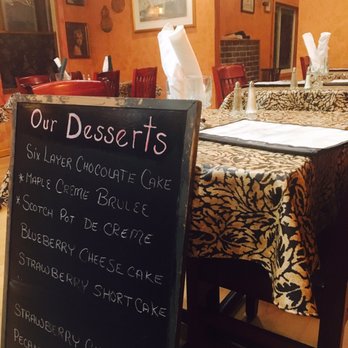 Our Desserts
Six Layer Chocolate Cake
* Maple Creme Brulee
* Scotch Pot De Creme
Blueberry Cheese Cake
Strawberry Short Cake
Strawberry
Pecan